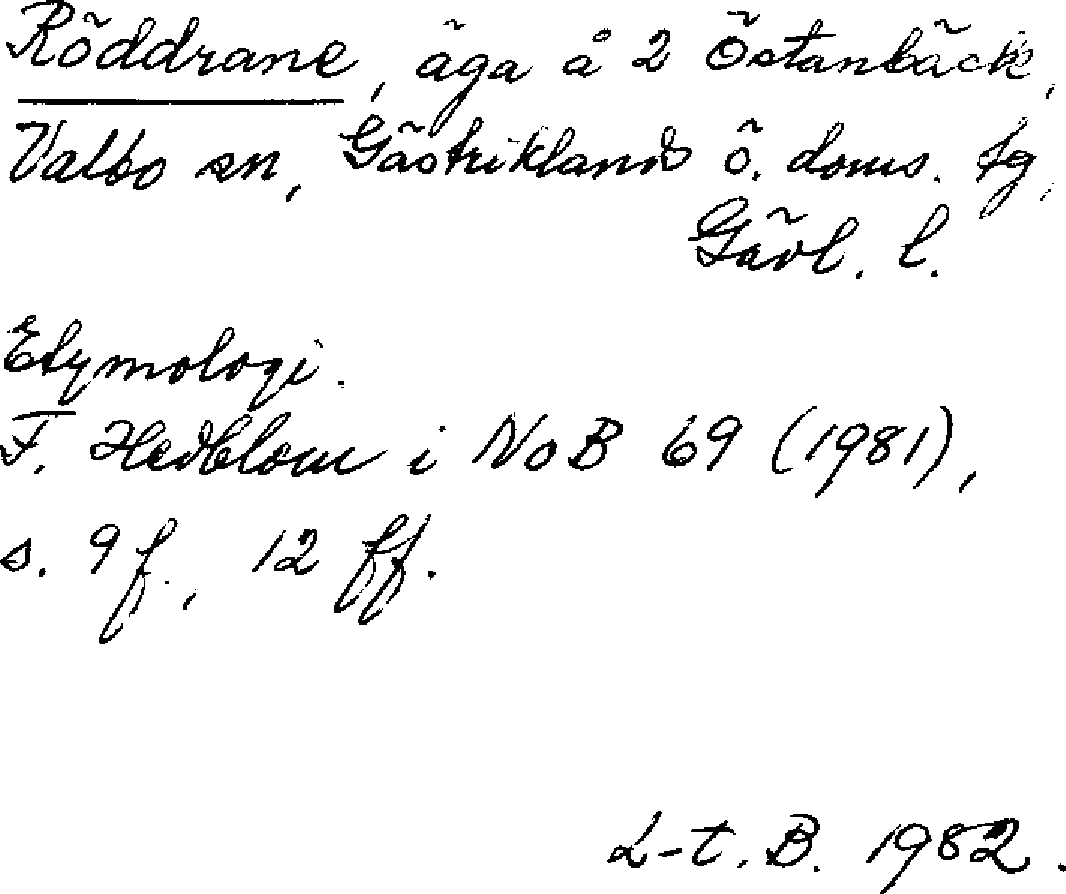 Röddrane, äga å 2 Östanbäck,
Valbo sn, Gästriklands ö. doms. tg,
Gävl. l.
Etymologi.
F. Hedblom i NoB 69 (1981),
s. 9 f., 12 ff.
L-t. B. 1982.